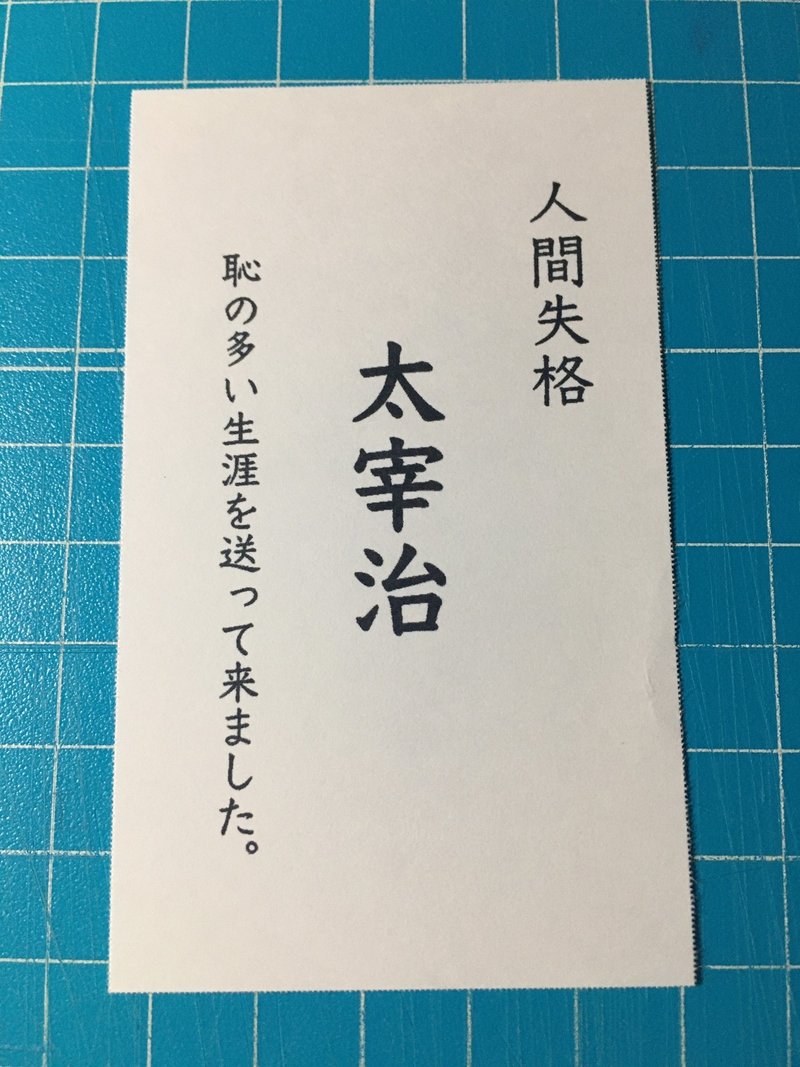 人間失格
太宰治
恥の多い生涯を送って来ました。